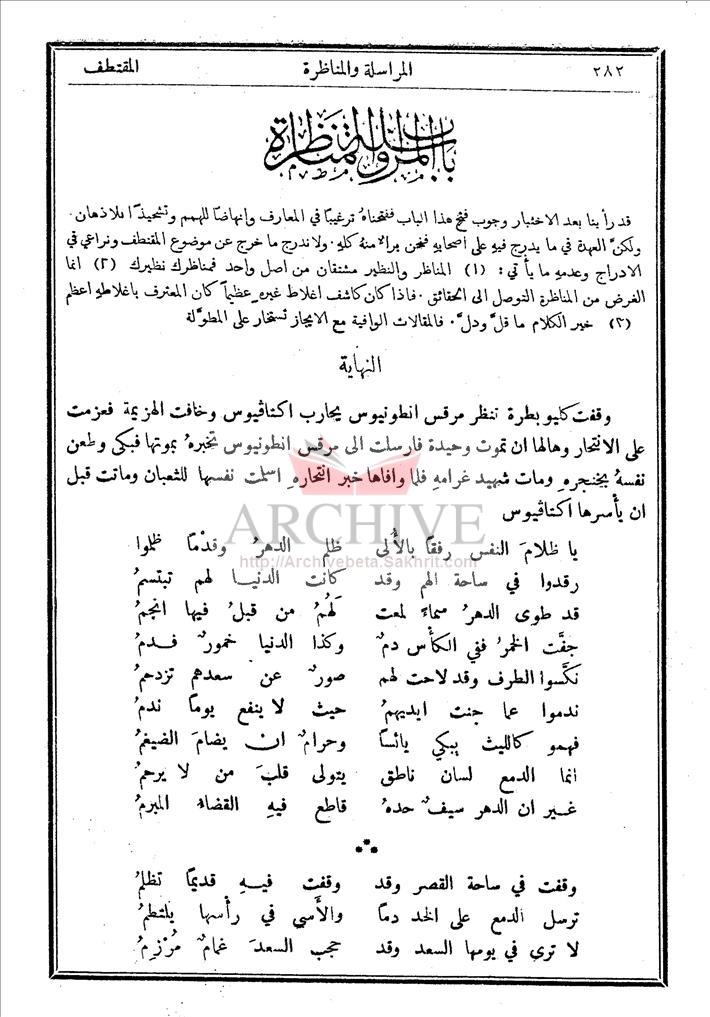 ٢٨٢ المراسلة والمناظرة المقتطف
باب المراسلة والمناظرة
قد رأينا بعد الاختبار وجوب فتح هذا الباب ففتحناهُ ترغيبًا في المعارف وإنهاضًا للهمم وتشحيذًا للاذهان.
ولكنَّ العهدة في ما يدرج فيهِ على اصحابهِ فنحن برالا منهُ كلهِ. ولا ندرج ما خرج عن موضوع المقتطف ونراعي في
الادراج وعدمهِ ما يأتي: (١) المناظر والنظير مشتقان من اصل واحد فمناظرك نظيرك (٢) انما
الغرض من المناظرة التوصل الى الحقائق. فاذا كان كاشف اغلاط غيرهِ عظيمًا كان المعترف باغلاطهِ اعظم
(٣) خير الكلام ما قلَّ ودلَّ. فالمقالات الوافية مع الايجاز تستخار على المطوَّلة
النهاية
وقفت كليوبطرة تنظر مرقس انطونيوس يحارب اكتاڤيوس وخافت الهزيمة فعزمت
على الانتحار وهالها ان تموت وحيدة فارسلت الى مرقس انطونيوس تخبرهُ بموتها فبكى وطعن
نفسهُ بخنجرهِ ومات شهيد غرامهِ فلما وافاها خبر انتحارهِ اسلمت نفسها للثعبان وماتت قبل
ان يأسرها اكتاڤيوس
ARCHIVE
http://Archivebeta.Sakhrit.com
يا ظلامَ النفس رفقًا بالأُلى ظلم الدهرُ وقدْمًا ظلموا
رقدوا في ساحة الهم وقد كانت الدنيا لهم تبتسمُ
قد طوى الدهرُ سماءً لمعت لَهُمُ من قبلُ فيها انجمُ
جفَّت الخمرُ ففي الكأس دمٌ وكذا الدنيا خمورٌ فدمُ
نكَّسوا الطرف وقد لاحت لهم صورٌ عن سعدهم تزدحمُ
ندموا عما جنت ايديهمُ حيث لا ينفع يومًا ندمُ
فهمو كالليث يبكي يائسًا وحرامٌ ان يضامَ الضيغمُ
انما الدمع لسان ناطق يتولى قلبَ من لا يرحمُ
غير ان الدهر سيفٌ حدهُ قاطع فيهِ القضاءُ المبرمُ
وقفت في ساحة القصر وقد وقفت فيهِ قديمًا تظلمُ
ترسل الدمع على الخد دمًا والأسى في رأسها يلتطمُ
لا ترى في يومها السعد وقد حجب السعدَ غمامٌ مُرْزِمُ